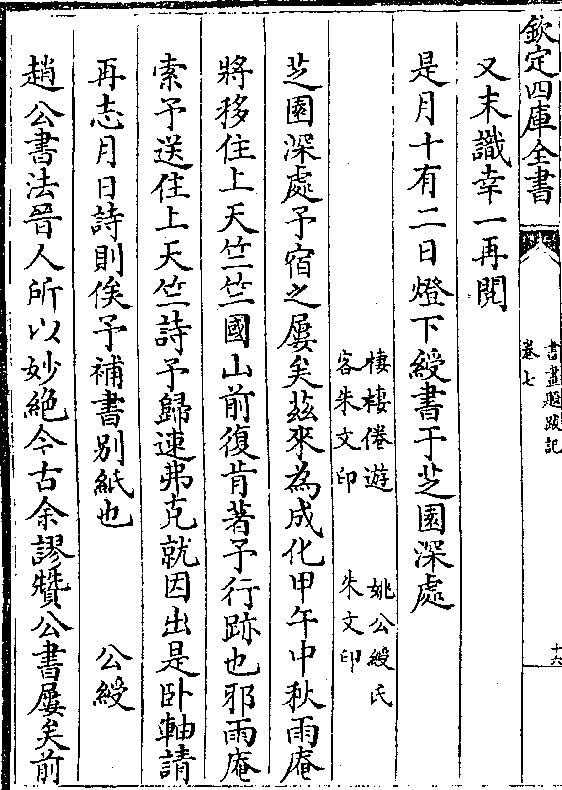 欽定四庫全書
書畫題跋記
卷七
十六
又末識幸一再閱
是月十有二日燈下綬書于芝園深處
棲棲倦遊
客朱文印
姚公綬氏
朱文印
芝園深處予宿之屢矣茲來為成化甲午中秋雨庵
將移住上天竺竺國山前復肯著予行跡也邪雨庵
索予送住上天竺詩予歸速弗克就因出是卧軸請
再志月日詩則俟予補書别紙也 公綬
趙公書法晉人所以妙絶今古余謬贊公書屢矣前